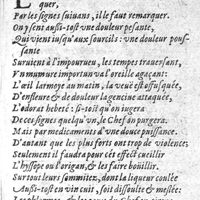 quer,
Par les signes suiuans, il le faut remarquer.
On y sent aussi-tost vne douleur pesante,
Qui vient iusqu'aux sourcils : vne douleur poussante
Suruient à l'impourueu, les tempes trauersant,
Vn murmure importun va l'oreille agaçant:
L'œil larmoye au matin, la veuë est offusquée,
D'enfleure & de douleur la genciue attaquée,
L'odorat hebeté : si-tost qu'on iugera
De ces signes quelqu'vn, le Chef on purgera.
Mais par medicaments d'vne douce puissance.
D'autant que les plus forts ont trop de violence,
Seulement il faudra pour cét effect cueillir
L'hyssope ou l'origan, & les faire boüillir,
Sur tout leurs sommitez, dont la liqueur coulée
Aussi-tost en vin cuit, soit dissoulte & meslée: